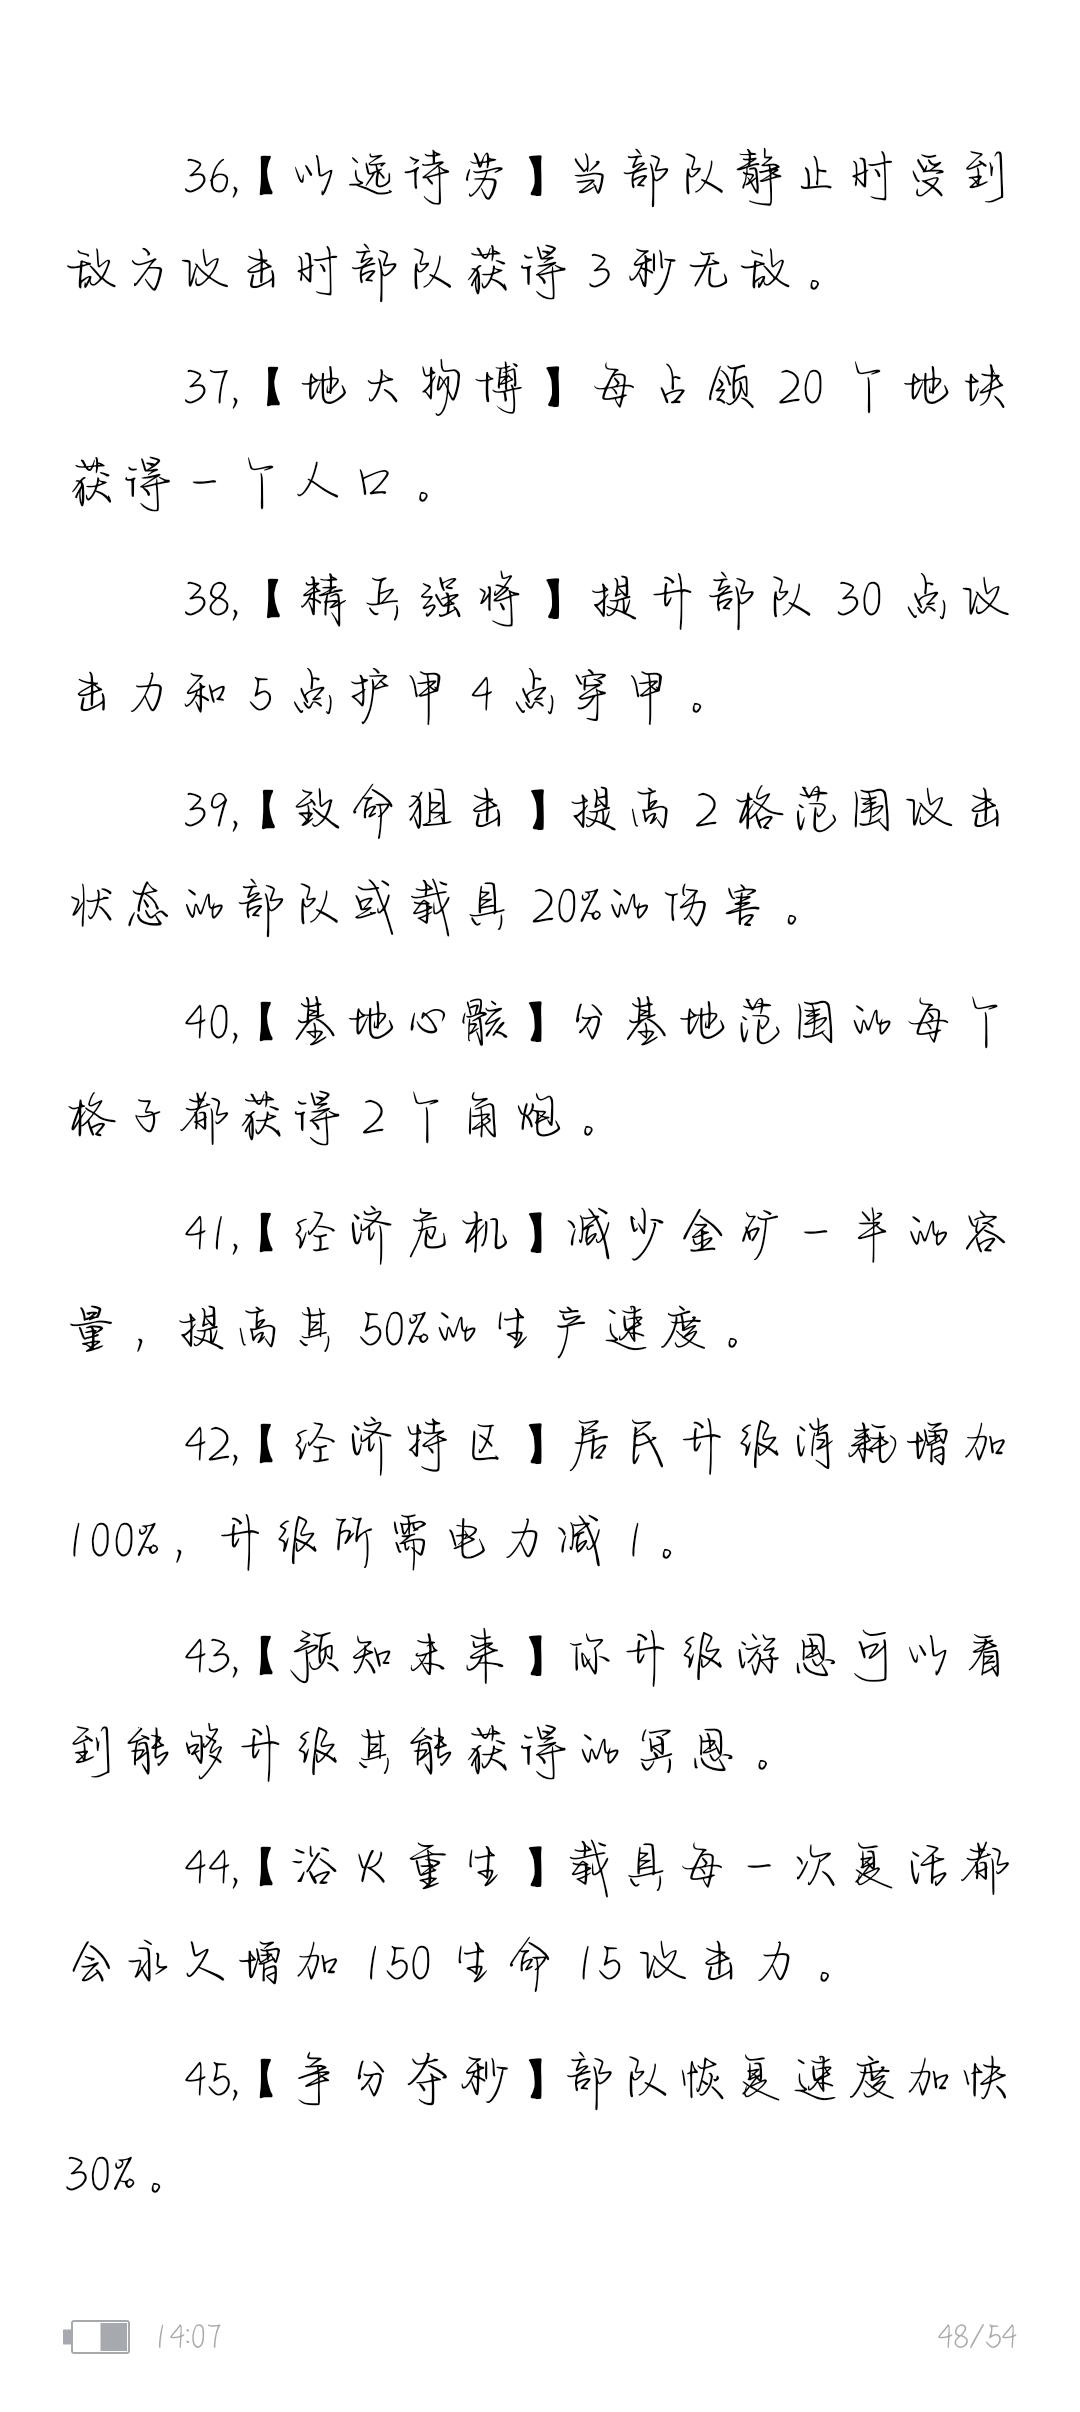 36,【以逸待劳】当部队静止时受到
敌方攻击时部队获得3秒无敌。
37,【地大物博】每占领20个地块
获得一个人口。
38,【精兵强将】提升部队30点攻
击力和5点护甲4点穿甲。
39,【致命狙击】提高2格范围攻击
状态的部队或载具20%的伤害。
40,【基地心骸】分基地范围的每个
格子都获得2个角炮。
41,【经济危机】减少金矿一半的容
量，提高其50%的生产速度。
42,【经济特区】居民升级消耗增加
100%，升级所需电力减1。
43,【预知未来】你升级游恩可以看
到能够升级其能获得的冥恩。
44,【浴火重生】载具每一次复活都
会永久增加150生命15攻击力。
45,【争分夺秒】部队恢复速度加快
30%。
14:07
48/54